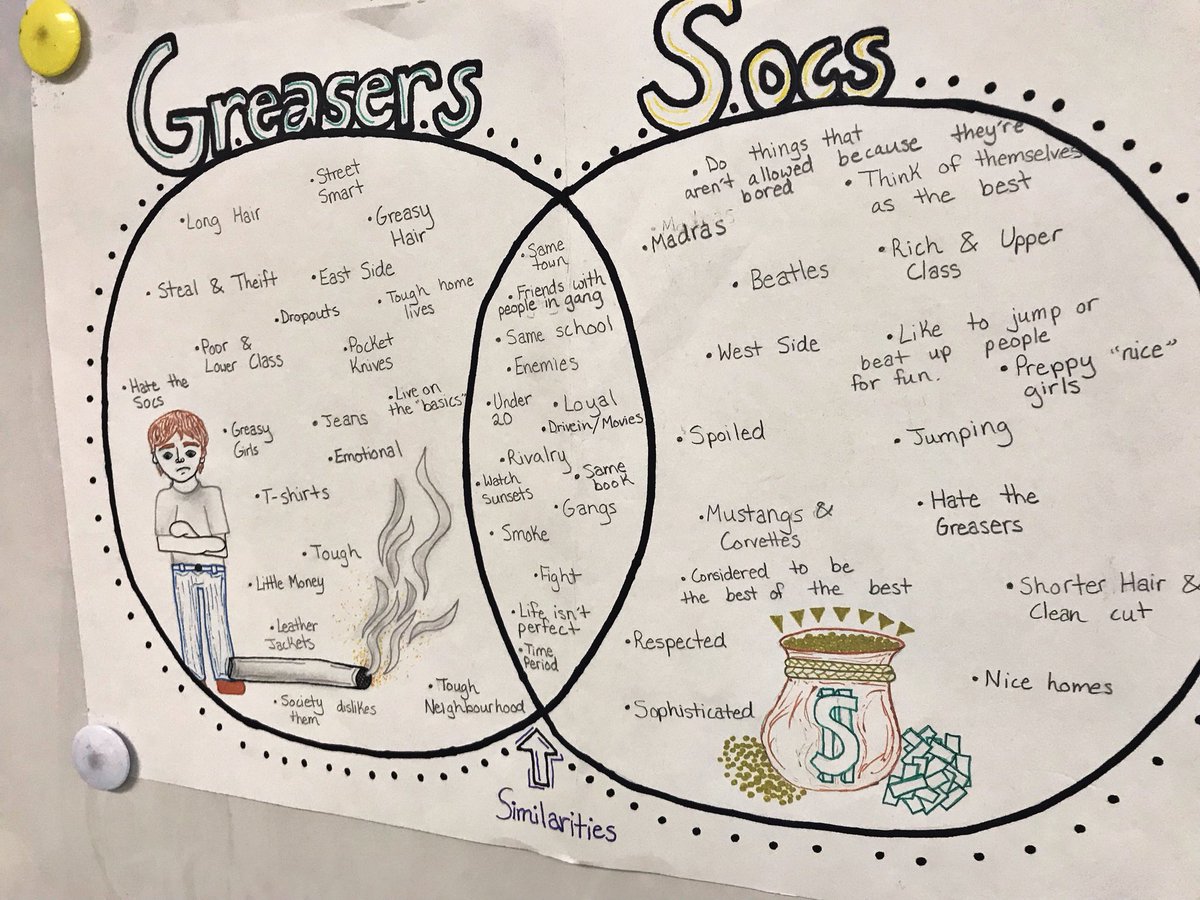 Greasers
Socs
•Street
Smart
•Long Hair
•Greasy
Hair
•Steal & Theift
•East Side
•Dropouts
•Tough home
lives
•Poor &
Lower Class
•Pocket
Knives
•Hate the
Socs
•Live on
the "basics"
•Greasy
Girls
•Jeans
•Emotional
•T-shirts
•Tough
•Little Money
•Leather
Jackets
•Society dislikes
them
•Tough
Neighbourhood
•Same
town
•Friends with
people in gang
•Same school
•Enemies
•Under
20
•Loyal
•Drivein/Movies
•Rivalry
•Watch
sunsets
•Same
book
•Gangs
•Smoke
•Fight
•Life isn't
perfect
•Time
Period
Similarities
•Do things that
aren't allowed because they're
bored
•Think of themselves
as the best
•Madras
•Madras
•Beatles
•Rich & Upper
Class
•West Side
•Like to jump or
beat up people
for fun.
•Preppy "nice"
girls
•Spoiled
•Jumping
•Mustangs &
Corvettes
•Hate the
Greasers
•Considered to be
the best of the best
•Shorter Hair &
Clean cut
•Respected
•Nice homes
•Sophisticated
$